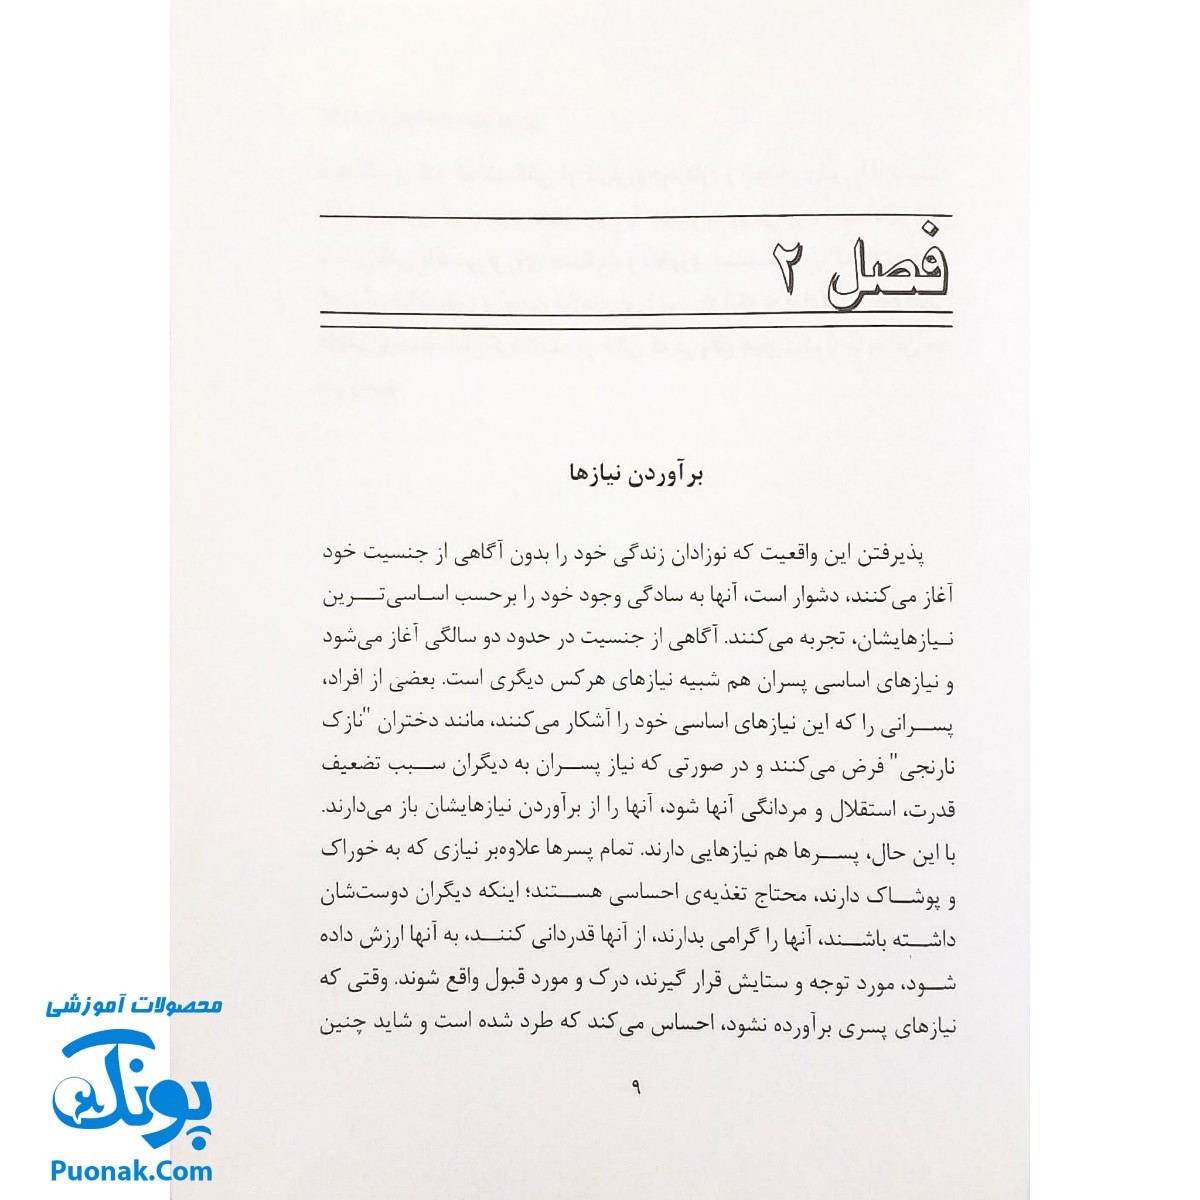 فصل ۲
برآوردن نیازها
پذیرفتن این واقعیت که نوزادان زندگی خود را بدون آگاهی از جنسیت خود
آغاز می‌کنند، دشوار است، آنها به سادگی وجود خود را برحسب اساسی‌ترین
نیازهایشان، تجربه می‌کنند. آگاهی از جنسیت در حدود دو سالگی آغاز می‌شود
و نیازهای اساسی پسران هم شبیه نیازهای هرکس دیگری است. بعضی از افراد،
پسرانی را که این نیازهای اساسی خود را آشکار می‌کنند، مانند دختران "نازک
نارنجی" فرض می‌کنند و در صورتی که نیاز پسران به دیگران سبب تضعیف
قدرت، استقلال و مردانگی آنها شود، آنها را از برآوردن نیازهایشان باز می‌دارند.
با این حال، پسرها هم نیازهایی دارند. تمام پسرها علاوه‌بر نیازی که به خوراک
و پوشاک دارند، محتاج تغذیه‌ی احساسی هستند؛ اینکه دیگران دوست‌شان
داشته باشند، آنها را گرامی بدارند، از آنها قدردانی کنند، به آنها ارزش داده
شود، مورد توجه و ستایش قرار گیرند، درک و مورد قبول واقع شوند. وقتی که
نیازهای پسری برآورده نشود، احساس می‌کند که طرد شده است و شاید چنین
۹
محصولات آموزشی
پونک
Puonak.Com